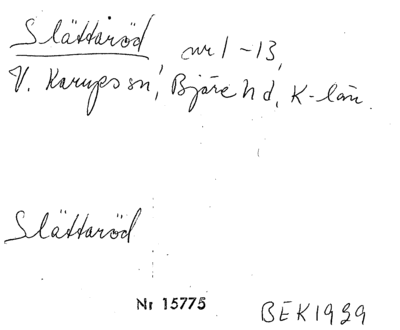 Slättaröd, nr 1-13,
V. Karups sn, Bjäre hd, K-län.
Slättaröd
Nr 15775
BEK1929